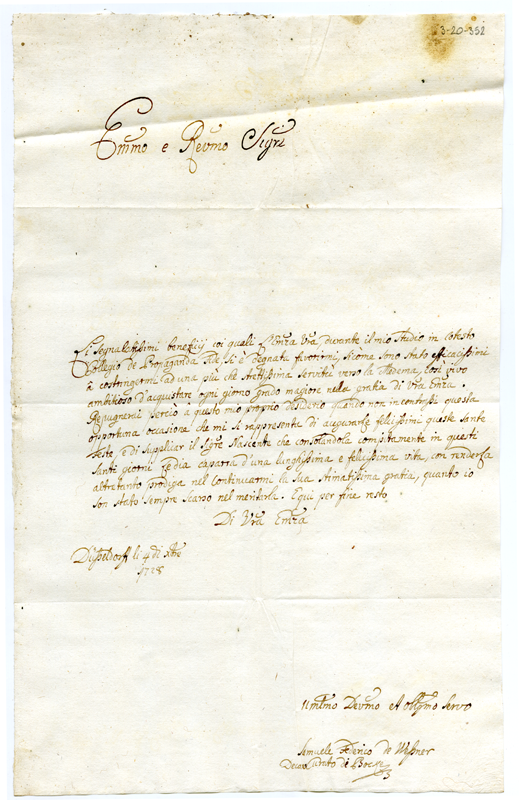 3-20-352
Emmo e Revmo Sigre
Li segnalatissimi beneficij coi quali l'Emza Vra durante il mio studio in cotesto
Collegio de Propaganda Fide si è degnata favorirmi, sicome sono stato efficacissimi
à costringermi ad una più che strettissima servitù verso la medema, così vivo
ambitioso d'acquistare ogni giorno grado magiore nella gratia di Vra Emza.
Repugnerei perciò a questo mio proprio desiderio quando non incontrassi questa
opportuna occasione che mi si rappresenta di augurarle felicissime queste sante
feste, e di supplicar il Sigre Nascente che consolandola compitamente in questi
santi giorni le dia caparra d'una lunghissima e felicissima vita, con renderla
altretanto prodiga nel continuarmi la sua stimatissima gratia, quanto io
son stato sempre scarso nel meritarla. E qui per fine resto
Di Vra Emza
Düsseldorff li 4 di Xbre
1725
Umilmo Devmo et Obligmo Servo
Samuele Federico de
di